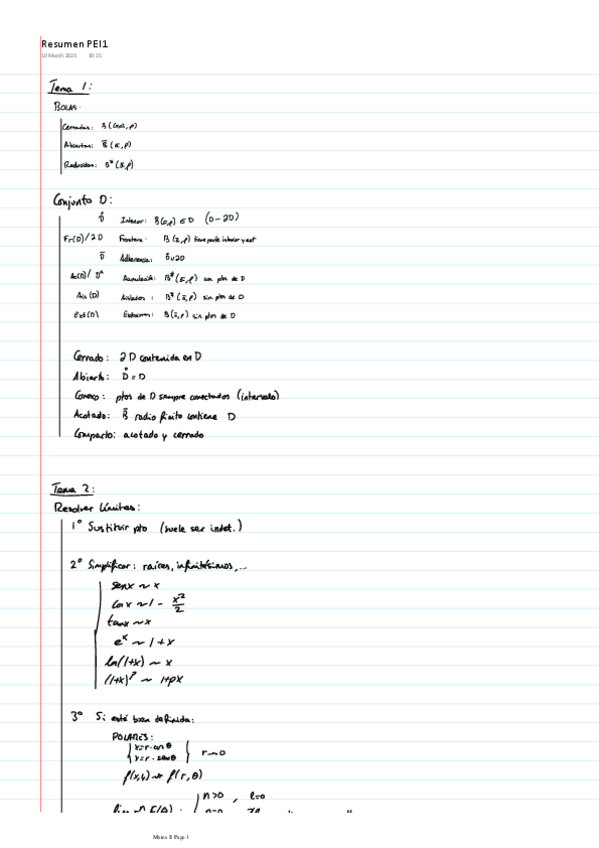 Resumen PEI1
10 March 2023 10:15
Tema 1:
BOLAS:
Cerradas: B(
Abiertas: B̄(x̄, ρ)
Reducidas: B*(x̄, ρ)
Conjunto D:
D̊ Interior: B(x̄, ρ) ∈ D (D - ∂D)
Fr(D)/∂D Frontera: B(x̄, ρ) tiene parte interior y ext
D̄ Adherencia: D̊ ∪ ∂D
Ac(D)/ Acumulación: B*(x̄, ρ) con ptos de D
Ais(D) Aislados: B*(x̄, ρ) sin ptos de D
Ext(D) Exteriores: B(x̄, ρ) sin ptos de D
Cerrado: ∂D contenida en D
Abierto: D̊ = D
Conexo: ptos de D siempre conectados (intervalo)
Acotado: B̄ radio finito contiene D
Compacto: acotado y cerrado
Tema 2:
Resolver límites:
1º Sustituir pto (suele ser indet.)
2º Simplificar: raíces, infinitésimos,...
senx ~ x
cosx ~ 1 - x²/2
tanx ~ x
eˣ ~ 1+x
ln(1+x) ~ x
(1+x)ᵖ ~ 1+px
3º Si está bien definida:
POLARES:
x=r·cosθ
y=r·senθ } r→0
f(x,y) → f(r,θ)
n>0, l=0
n=0,
Mates II Page 1